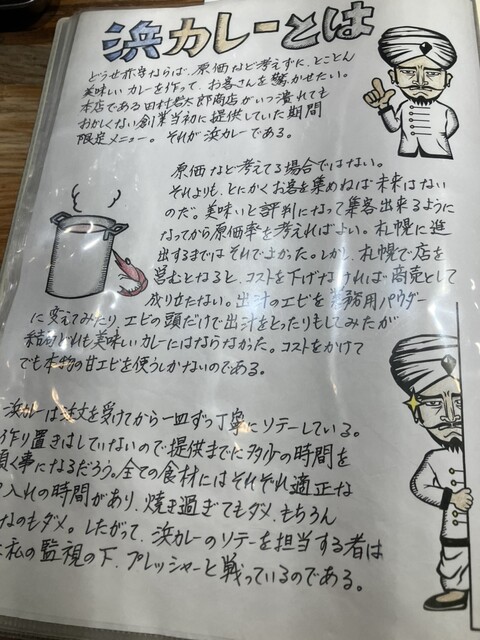 浜カレーとは
どうせ赤字ならば、原価など考えずに、とことん
美味しいカレーを作って、お客さんを驚かせたい。
本店である田村岩太郎商店がいつ潰れても
おかしくない創業当初に提供していた期間
限定メニュー。それが浜カレーである。
原価など考てる場合ではない。
それよりも、とにかくお客を集めねば未来はない
のだ。美味いと評判になって集客出来るように
なってから原価率を考えればよい。札幌に進
出するまではそれでよかった。しかし、札幌で店を
営むとなると、コストを下げなければ商売として
成り立たない。出汁のエビを業務用パウダー
に変えてみたり、エビの頭だけで出汁をとったりもしてみたが
結局どれも美味しいカレーにはならなかった。コストをかけて
でも本物の甘エビを使うしかないのである。
浜カレーは注文を受けてから一皿ずつ丁寧にソテーしている。
作り置きはしていないので提供までに多少の時間を
頂く事になるだろう。全ての食材にはそれぞれ適正な
入れの時間があり、焼き過ぎてもダメ、もちろん
なのもダメ。したがって、浜カレーのソテーを担当する者は
私の監視の下、プレッシャーと戦っているのである。